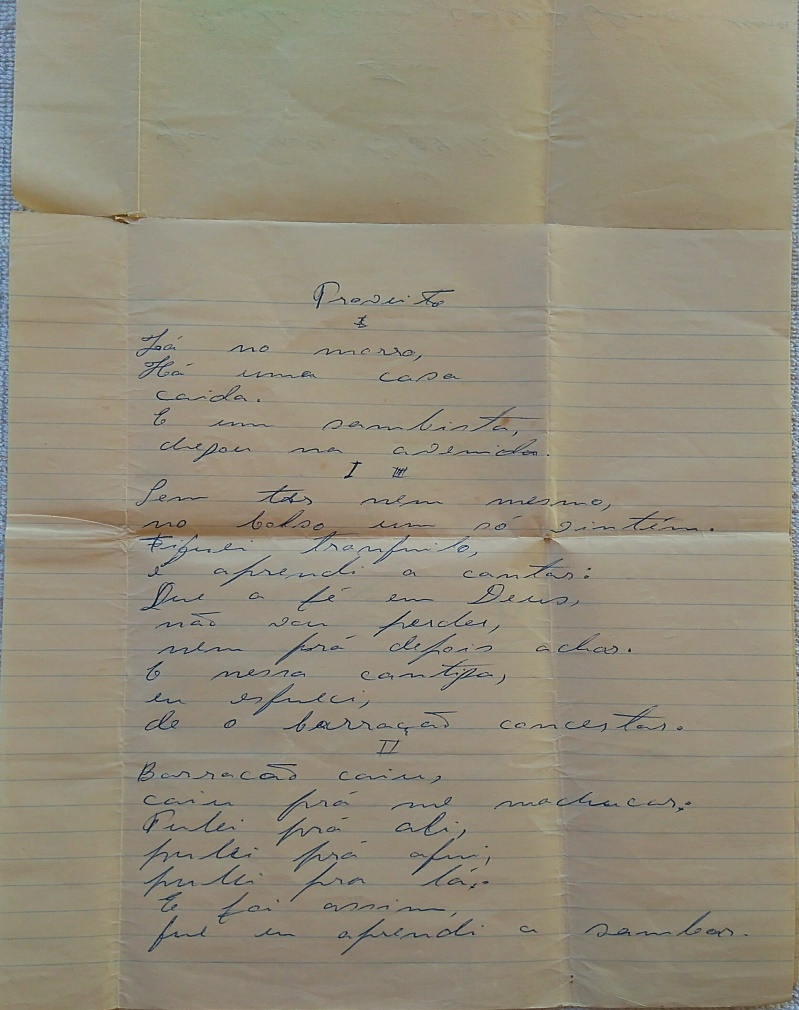 Proveito
I
Lá no morro,
Há uma casa
caida.
E um sambista,
chegou na avenida.
I III
Sem ter nem mesmo,
no bolso um só vintém.
Fiquei tranquilo,
e aprendi a cantar:
Que a fé em Deus,
não vou perder,
nem prá depois achar.
E nessa cantiga,
eu esqueci,
de o barracão concertar.
II
Barracão caiu,
caiu prá me machucar;
Pulei prá ali,
pulei prá aqui,
pulei pra lá;
E foi assim,
que eu aprendi a sambar.